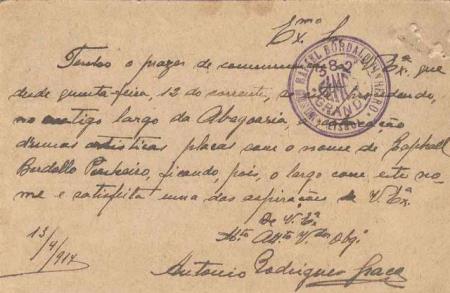 Exmo S.
Tenho o prazer de communicar a V. Exª, que
desde quarta-feira, 12 do corrente,
no antigo largo da Abegoaria, a collocação
d'umas artisticas placas com o nome de Raphael
Bordallo Pinheiro, ficando, pois, o largo com este no-
me e satisfeita uma das aspirações de V. Exª.
De V. Exª
Mto Atto Vdor Obgº
13/4/917
Antonio Rodrigues Graça
MUSEU RAFAEL BORDALO PINHEIRO
CAMPO GRANDE
LISBOA